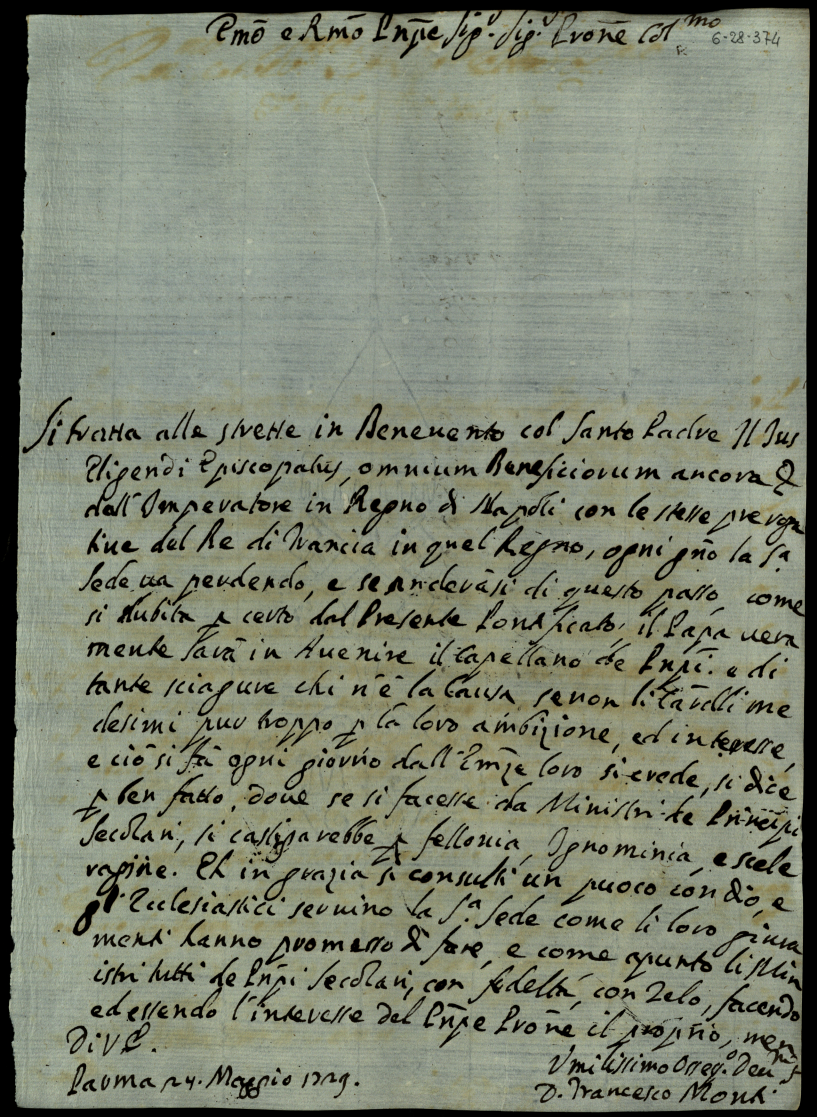 Emo e Rmo Pnpe Sigr. Sigr. Prone Colmo
6-28-374
Si tratta alle strette in Beneuento col Santo Padre Il Jus
Eligendi Episcopatus, omnium Beneficiorum ancora
dell'Imperatore in Regno di Napoli con le stesse preroga
tiue del Re di Francia in quel Regno, ogni gno la Sa
Sede ua perdendo, e se anderasi di questo passo, come
si dubita p certo dal Presente Pontificato; il Papa uera
mente sarà in Auenire il Capellano de Pnpi. e di
tante sciagure chi n'è la Causa se non li Cardlli me
desimi pur troppo p la loro ambizione, ed interesse,
e ciò si fà ogni giorno dall'Emze loro si crede, si dice
p ben fatto, doue se si facesse da Ministri de Principi
Secolari, si castigarebbe p fellonia, Ignominia, e scele
ragine. Eh in grazia si consulti un puoco con Dio, e
gl'Ecclesiastici seruino la Sa. Sede come li loro giura
menti hanno promesso di fare, e come apunto li Min
istri tutti de Pnpi Secolari, con fedeltà, con Zelo, facendo
ed essendo l'interesse del Pnpe Prone il proprio, men
Di V E.
Parma 24. Maggio 1729.
Vmilissimo Osseqo. Deu
D. Francesco Monti